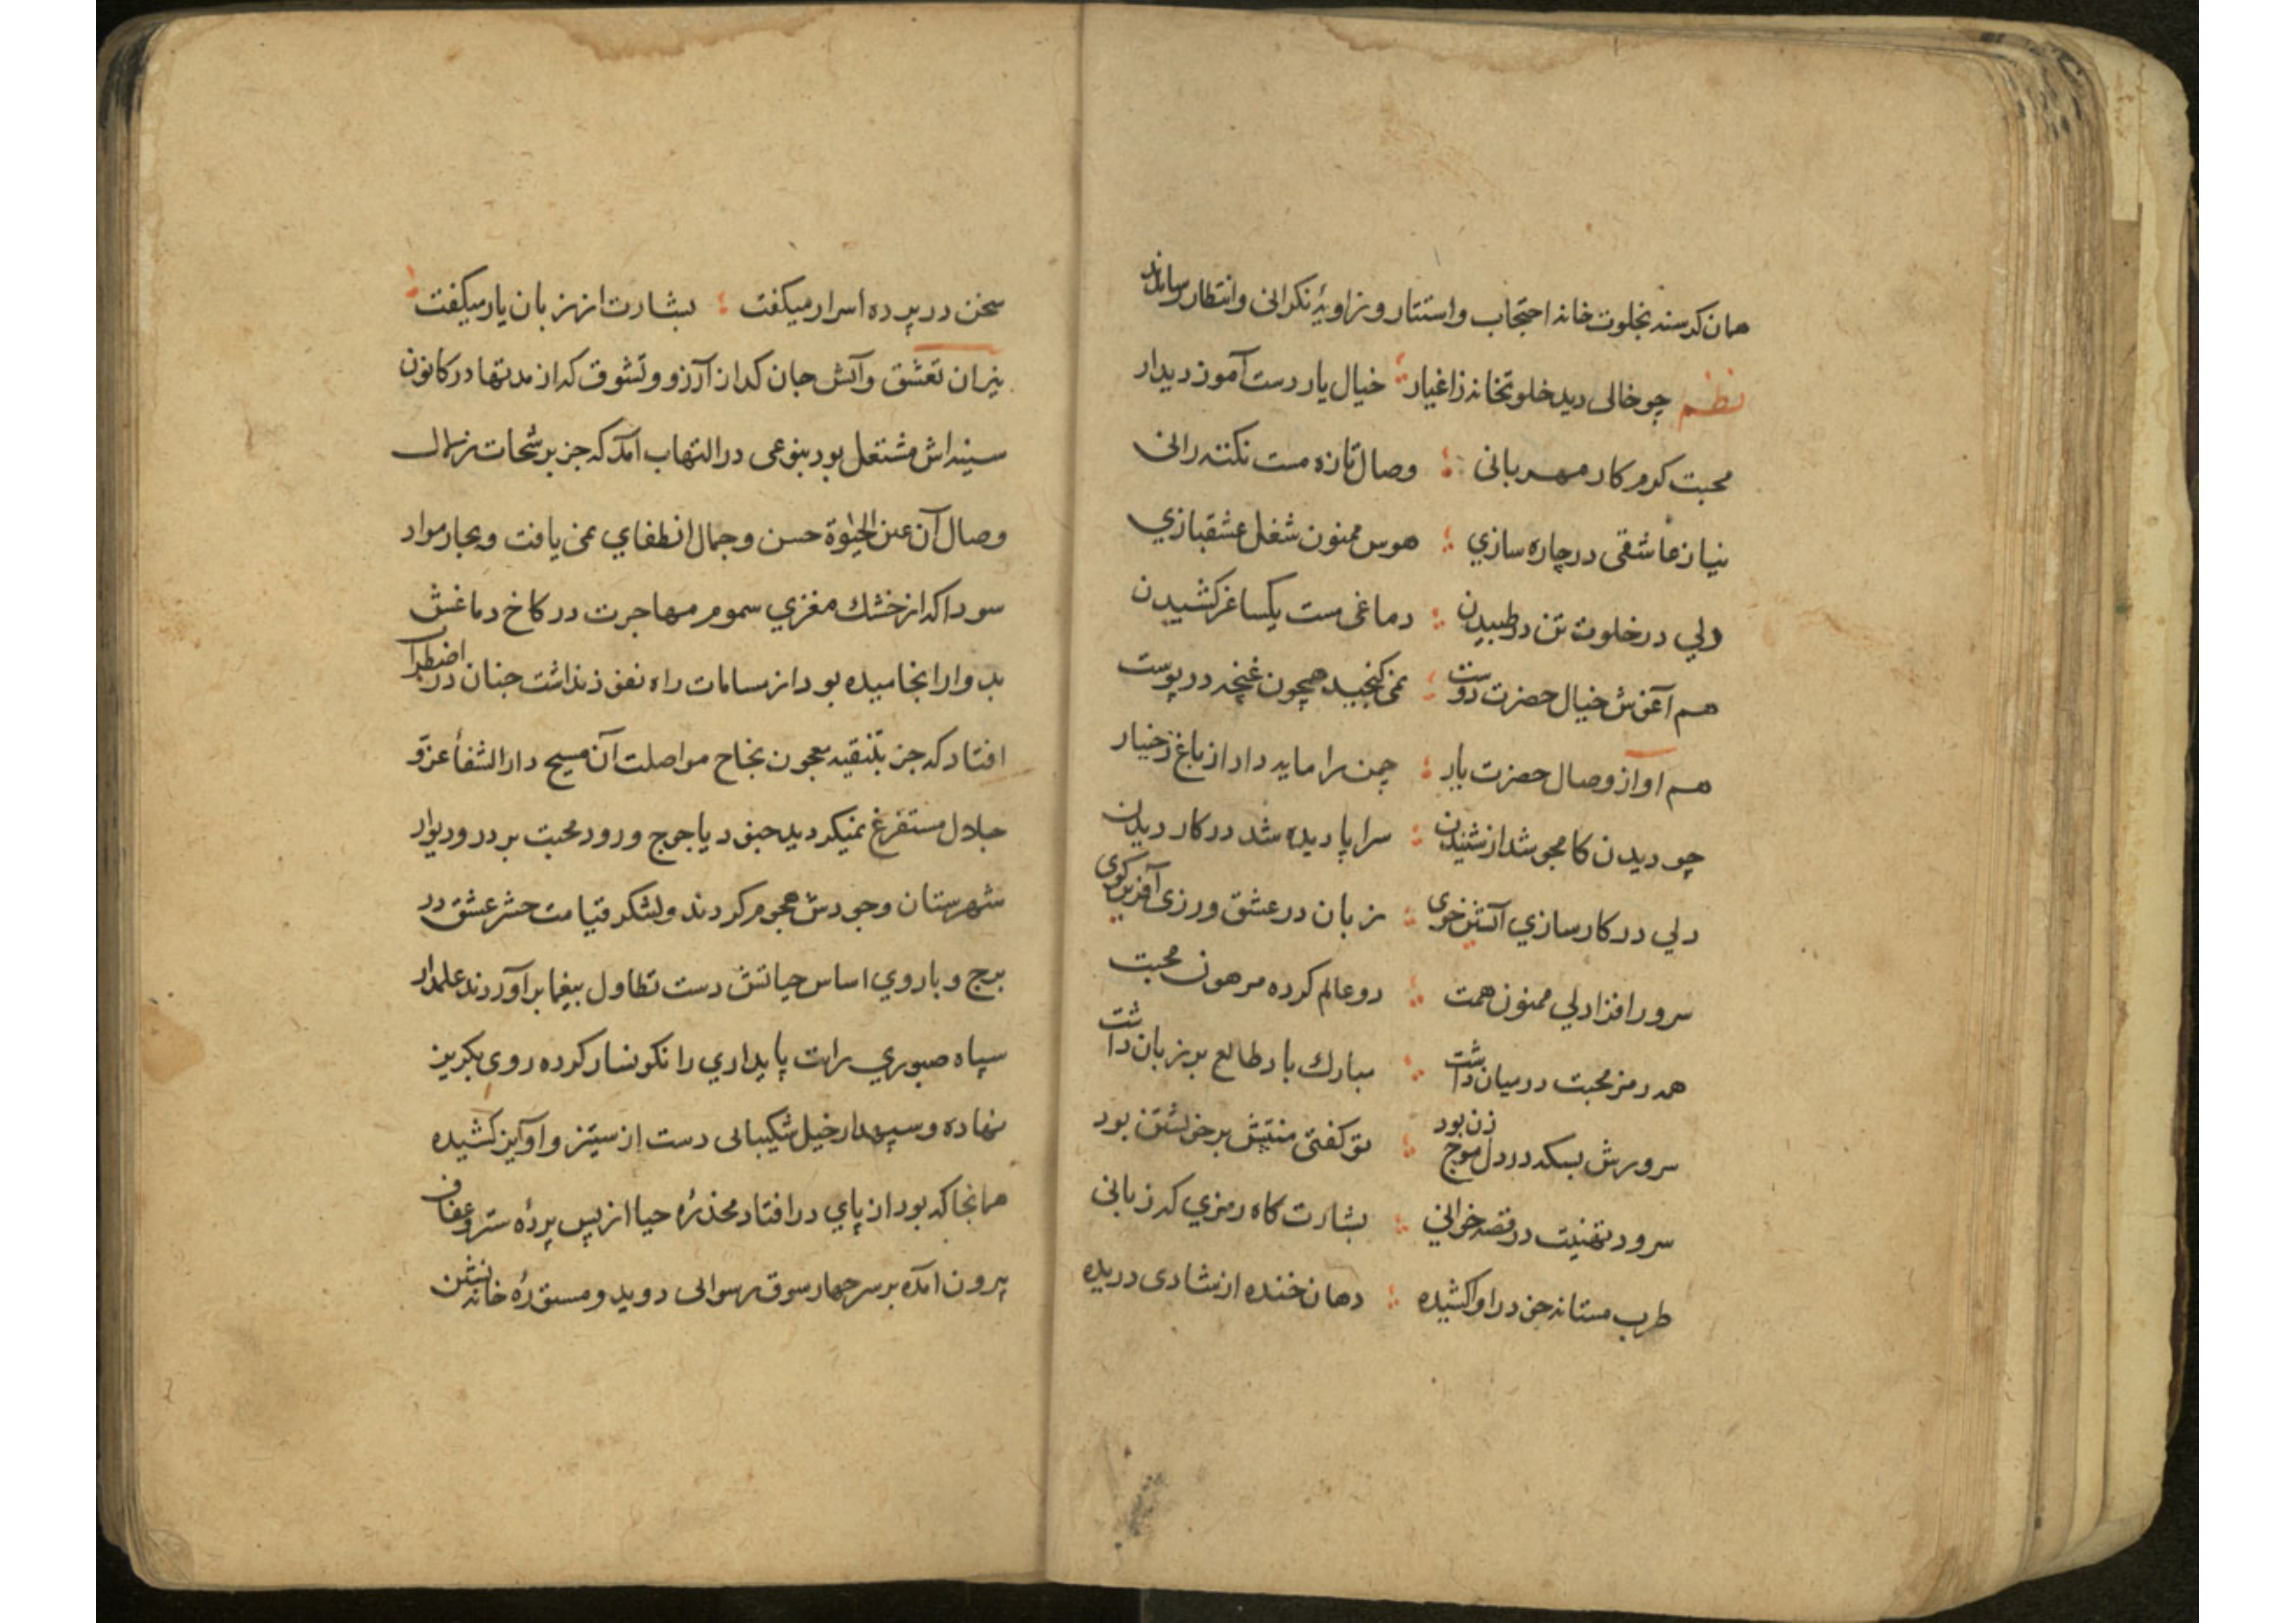 همان کرسنه بخلوت خانه احتجاب واستتار و زاویۀ نکرانی وانتظار رساندند
نظم چو خالی دید خلوتخانه ز اغیار خیال یار دست آموز دیدار
محبت کرم کار مهربانی وصال تازه مست نکته رانی
نیاز عاشقی در چاره سازي هوس ممنون شغل عشقبازي
دلي در خلوت تن در طبیدن دماغی مست یکساغر کشیدن
هم آغوش خیال حضرت دوست نمی کنجید همچون غنچه در پوست
هم اواز وصال حضرت یار چمن را مایه داد از باغ رخسار
چو دیدن کامجو شد از شنیدن سراپا دیده شد در کار دیدن
دلي در کارسازي آتشین خوی زبان در عشق ورزی آفرین کوی
سرور افزا دلي ممنون همت دو عالم کرده مرهون محبت
همه رمز محبت در میان داشت مبارك باد طالع بر زبان داشت
سرورش بسکه در دل موج زن بود تو کفتی منتش بر خویشتن بود
سرود تهنیت در قصه خوانی بشارت کاه رمزي که زبانی
طرب مستانه چون در او کشیده دهان خنده از شادی دریده
سخن در پرده اسرار میکفت بشارت از زبان یار میکفت
نیران تعشق وآتش جان کداز آرزو وتشوق که از مدتها در کانون
سینه اش مشتعل بود بنوعی در التهاب آمد که جز برشحات زلال
وصال آن عین الحیوة حسن وجمال انطفاي نمی یافت وبخار مواد
سودا که از خشك مغزي سموم مهاجرت در کاخ دماغش
بد وار انجامیده بود از مسامات راه نفوذ نداشت جنان در اضطراب
افتاد که جز بتنقیه معجون نجاح مواصلت آن مسیح دار الشفأ عز و
جلال مستفرغ نمیکردید جنود یاجوج ورود محبت بر در و دیوار
شهرستان وجودش هجوم کردند ولشکر قیامت حشر عشق در
برج و باروي اساس حیاتش دست تطاول بیغما برآوردند علمدار
سپاه صبوري رایت پایداري را نکونسار کرده روی بکریز
نهاده وسپهدار خیل شکیبائی دست از ستیز و آویز کشیده
همانجا که بود از پاي در افتاد مخدرۀ حیا از پس پردۀ ستر وعفاف
بیرون آمده بر سر چهار سوق رسوائی دوید ومستورۀ خانه نشین